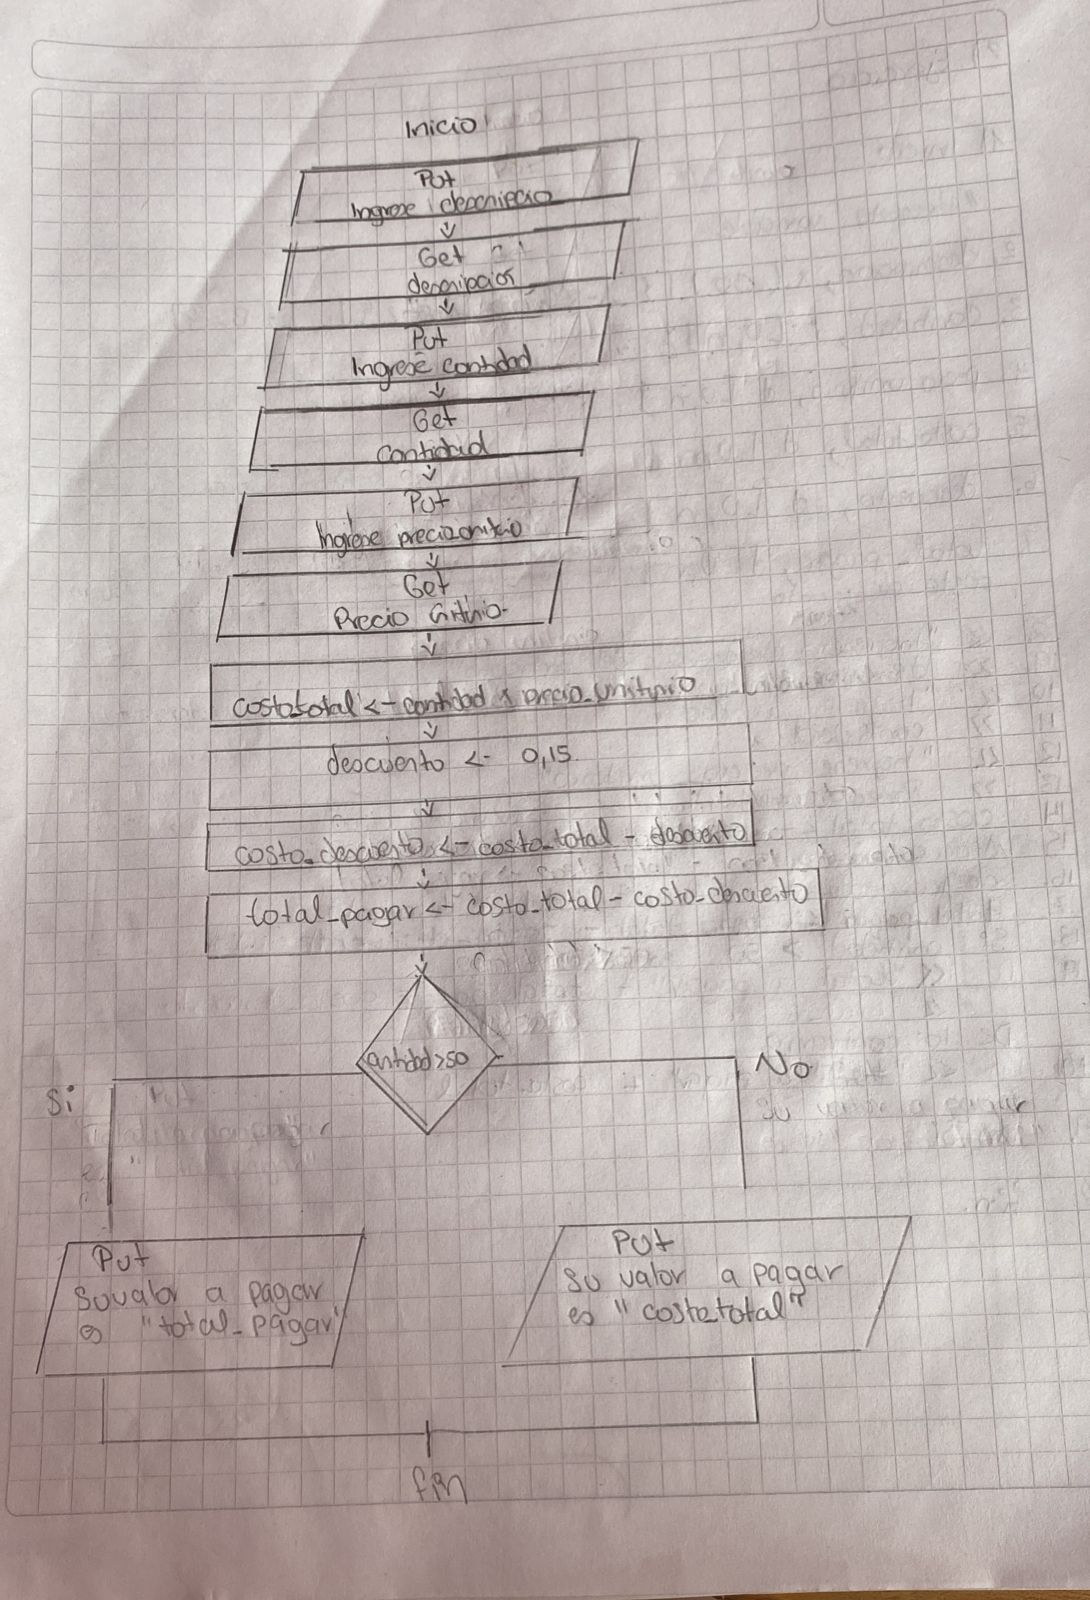 Inicio
Put
Ingrese descripcio
Get
descripcion
Put
Ingrese cantidad
Get
cantidad
Put
Ingrese
Get
Precio
costototal <- cantidad * precio_unitario
descuento <- 0,15
costo_descuento <- costo_total - descuento
total_pagar <- costo_total - costo_descuento
cantidad>50
Si
No
Put
Su valor a pagar
es "total_pagar"
Put
Su valor a pagar
es "costototal"
fin